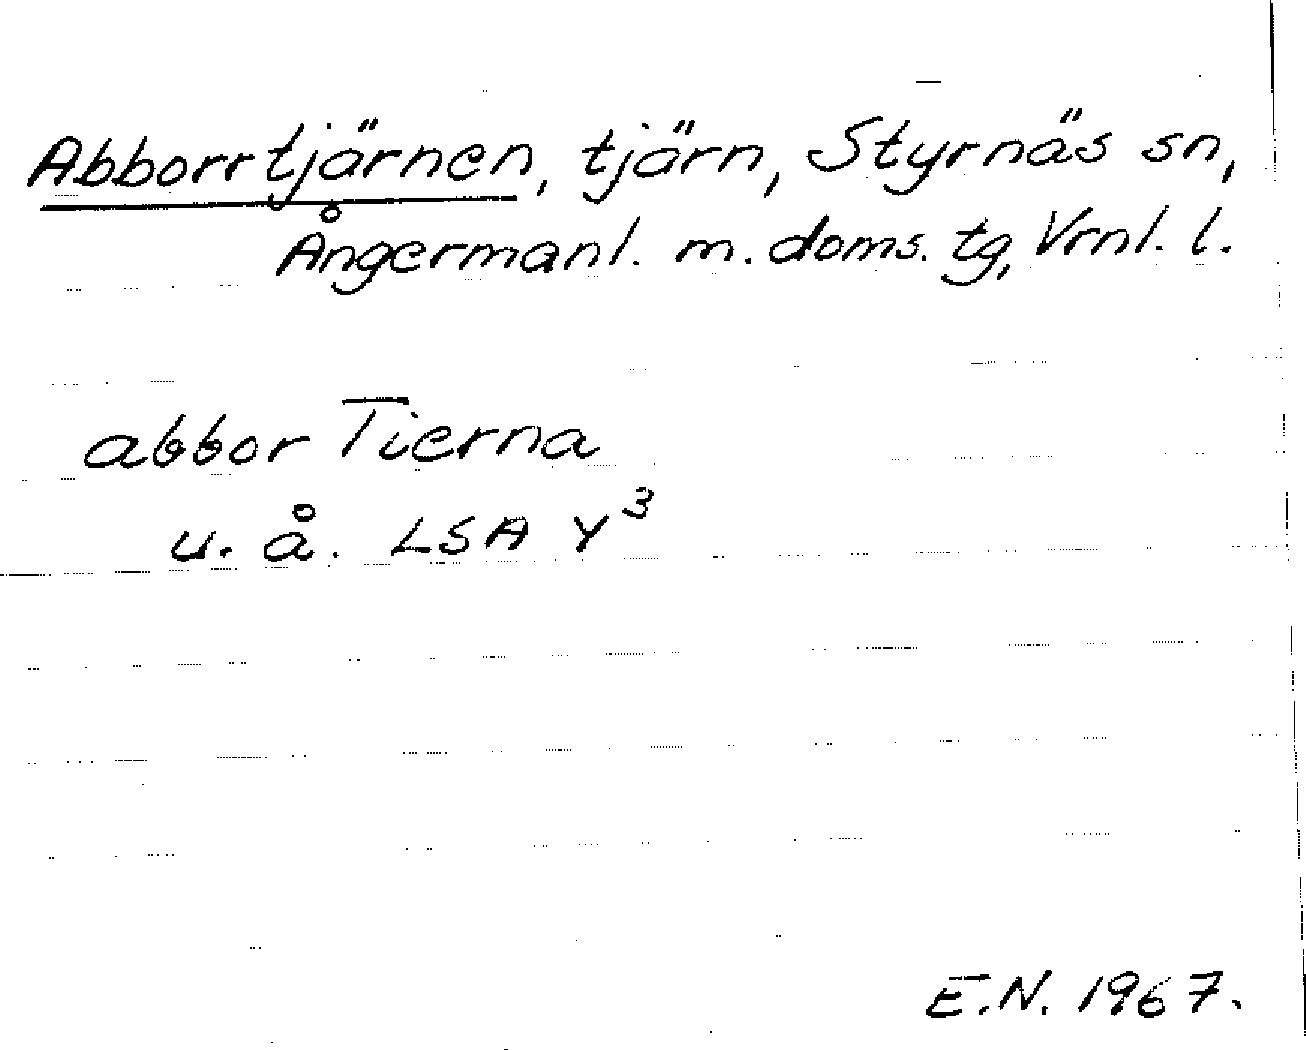 Abborrtjärnen, tjärn, Styrnäs sn,
Ångermanl. m. doms. tg, Vrnl. l.
abbor Tierna
u. å. LSA Y³
E.N. 1967.